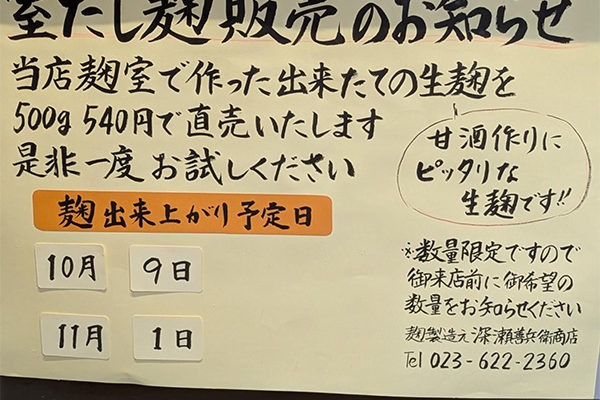 室だし麹販売のお知らせ
当店麹室で作った出来たての生麹を
500g 540円で直売いたします
是非一度 お試しください
甘酒作りに
ピッタリな
生麹です!!
麹 出来上がり予定日
10月 9日
11月 1日
※数量限定ですので
御来店前に御希望の
数量をお知らせください
麹製造元 深瀬善兵衛商店
Tel 023-622-2360